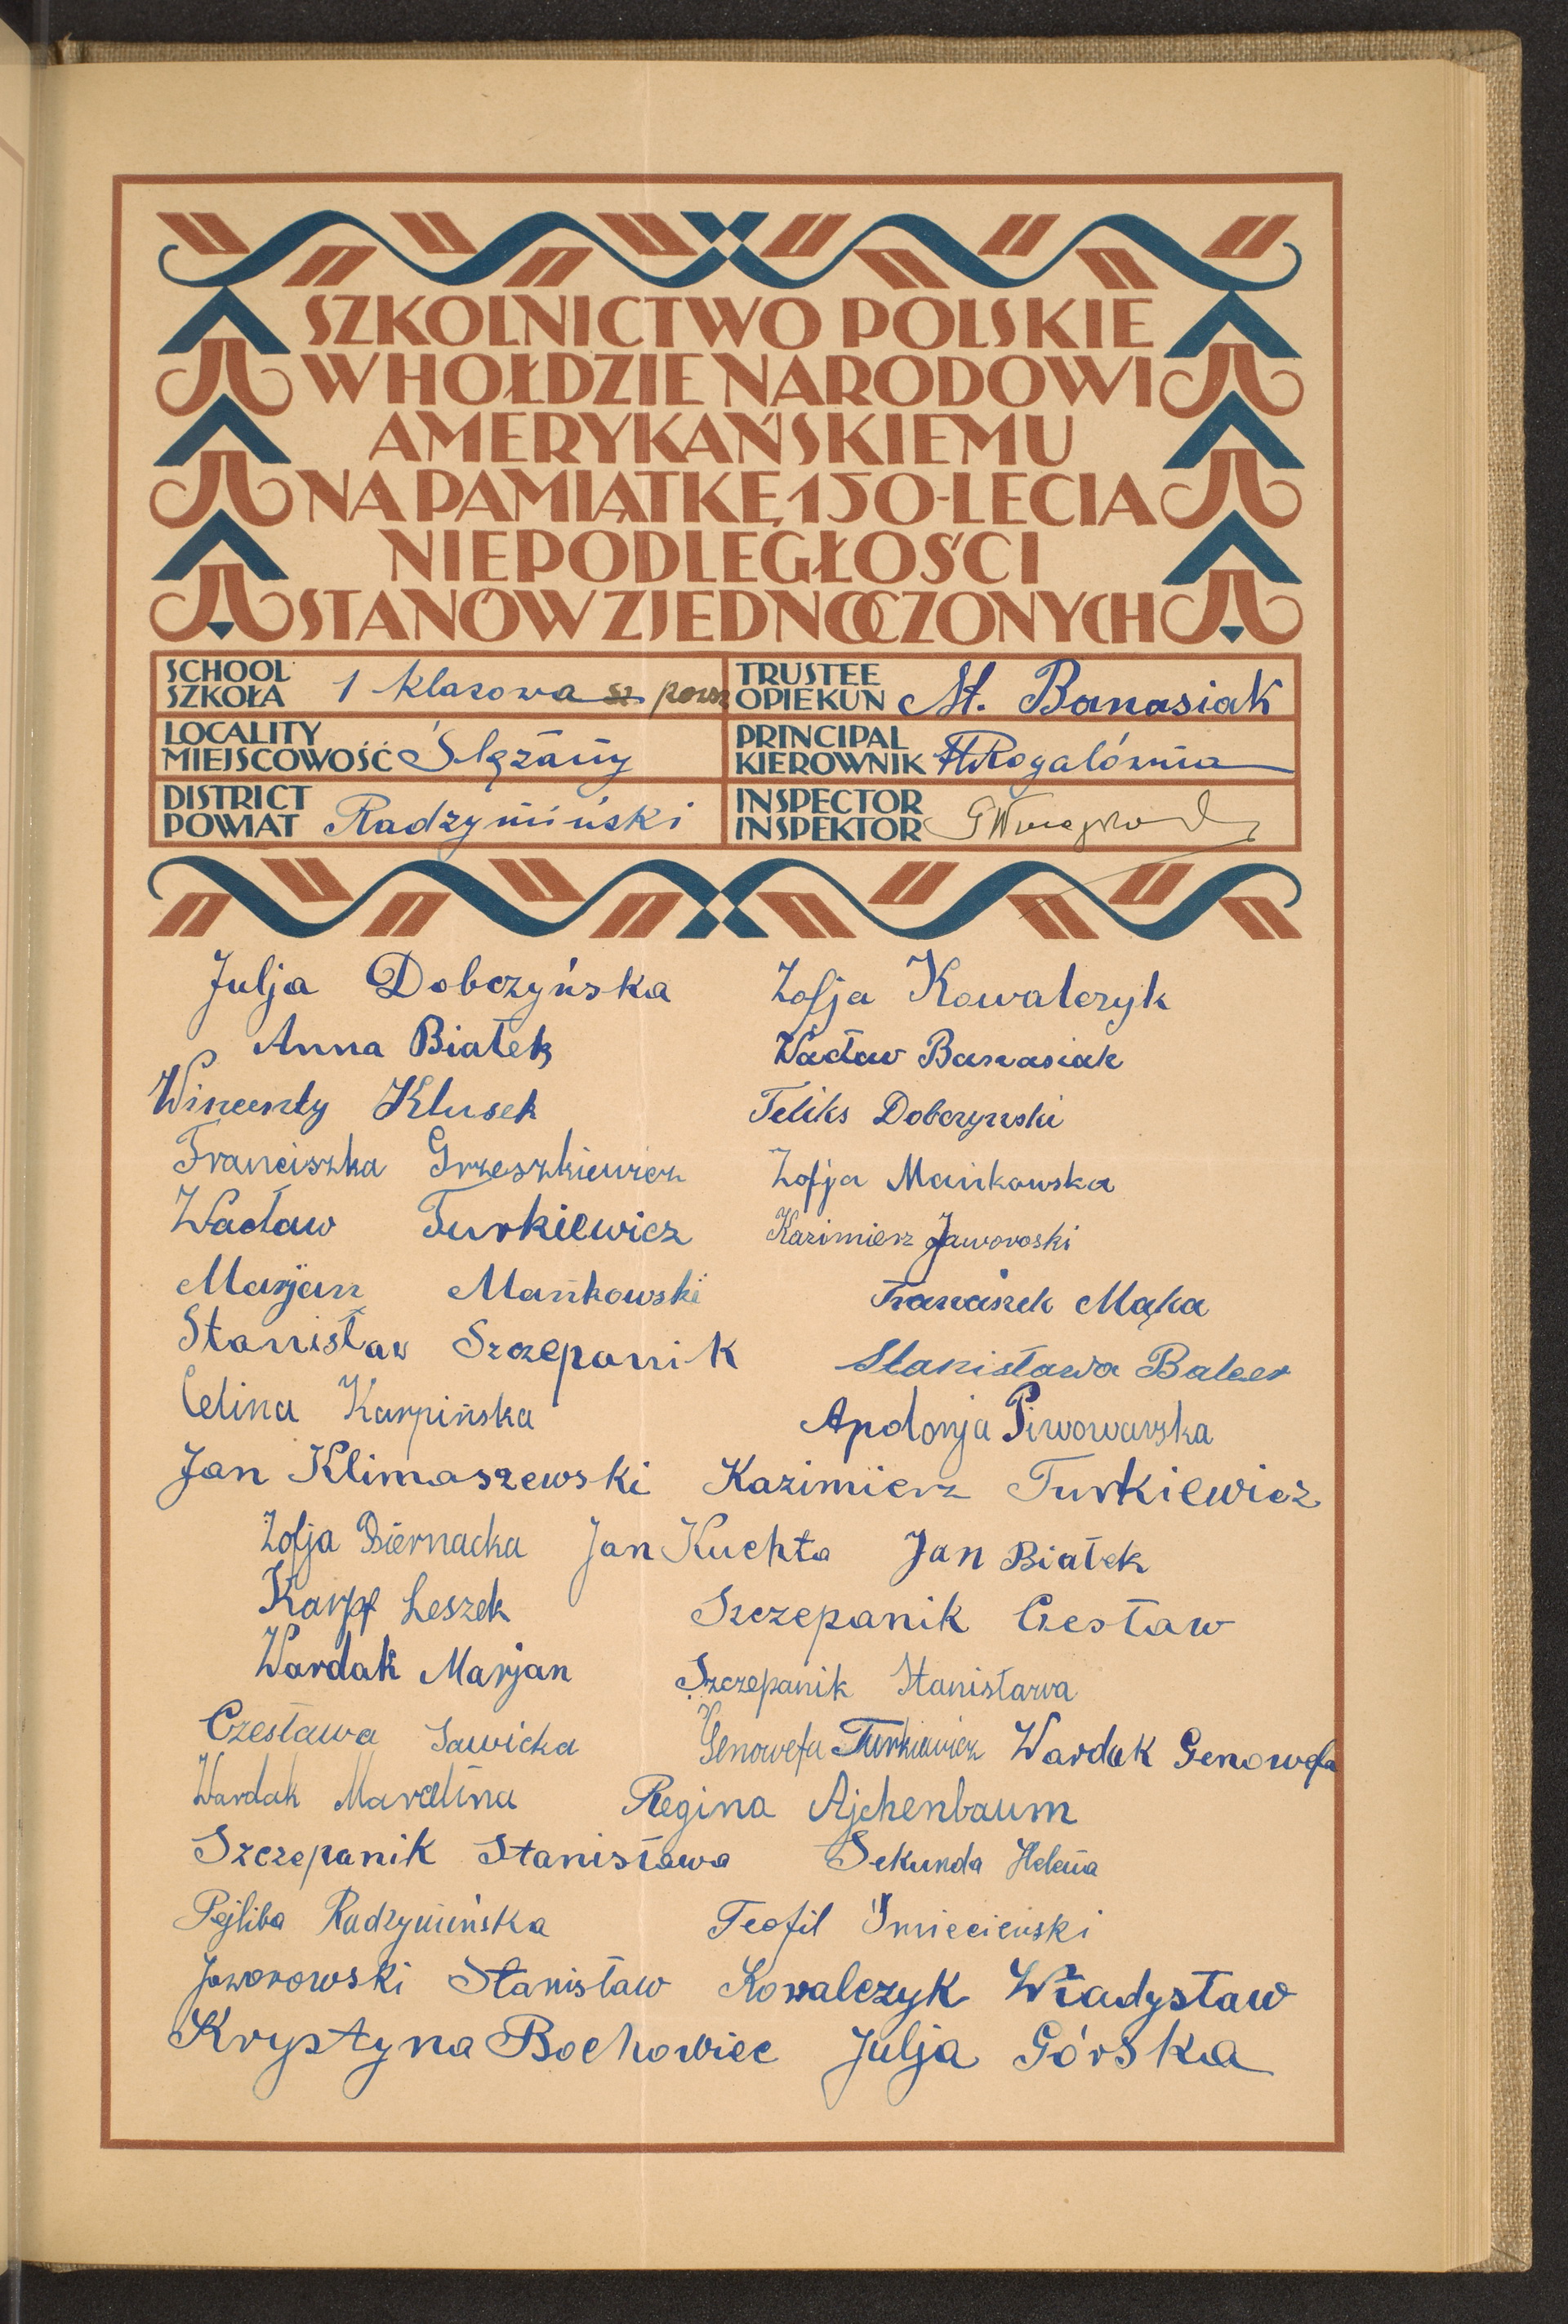 SZKOLNICTWO POLSKIE
W HOŁDZIE NARODOWI
AMERYKAŃSKIEMU
NA PAMIĄTKĘ 150-LECIA
NIEPODLEGŁOŚCI
STANÓW ZJEDNOCZONYCH
SCHOOL
SZKOŁA 1 klasowa sz powsz
TRUSTEE
OPIEKUN St. Banasiak
LOCALITY
MIEJSCOWOŚĆ Ślężany
PRINCIPAL
KIEROWNIK HRogalówna
DISTRICT
POWIAT Radzymiński
INSPECTOR
INSPEKTOR
Julja Dobczyńska Zofja Kowalczyk
Anna Białek Wacław Banasiak
Wincenty Klusek Feliks Dobczynski
Franciszka Grzeszkiewicz Zofja Mańkowska
Wacław Turkiewicz Kazimierz Jaworoski
Marjan Mańkowski Franciszek Mąka
Stanisław Szczepanik Stanisława Balcer
Celina Karpińska Apolonja Piwowarska
Jan Klimaszewski Kazimierz Turkiewicz
Zofja Biernacka Jan Kuchta Jan Białek
Karpf Leszek Szczepanik Czesław
Wardak Marjan Szczepanik Stanisława
Czesława Sawicka Genowefa Turkiewicz Wardak Genowefa
Wardak Marcelina Regina Ajchenbaum
Szczepanik Stanisława Sekunda Helena
Pejliba Radzymińska Teofil Śmieciński
Jaworowski Stanisław Kowalczyk Władysław
Krystyna Bochowiec Julja Górska